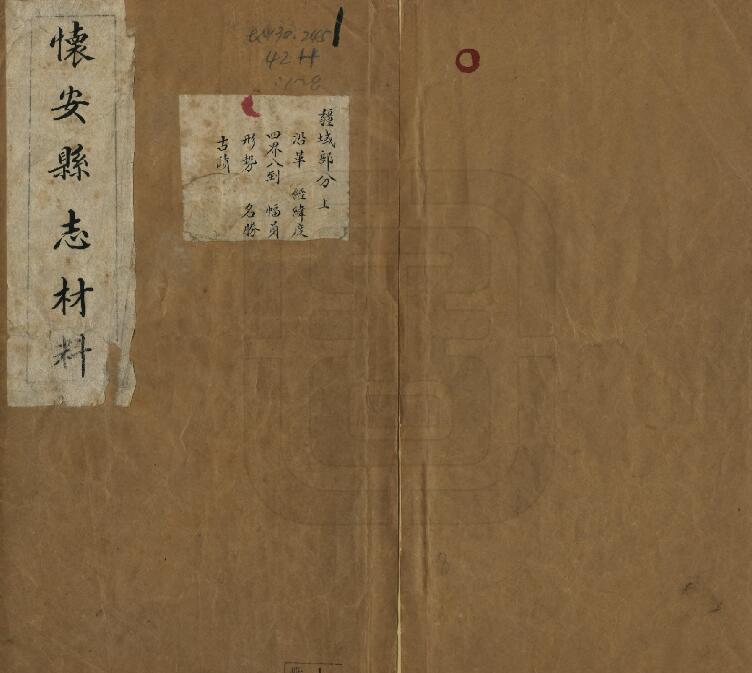 懷安縣志材料
疆域部分上
沿革 經緯度
四界八到 幅員
形勢 名勝
古蹟
42
:1~8
1